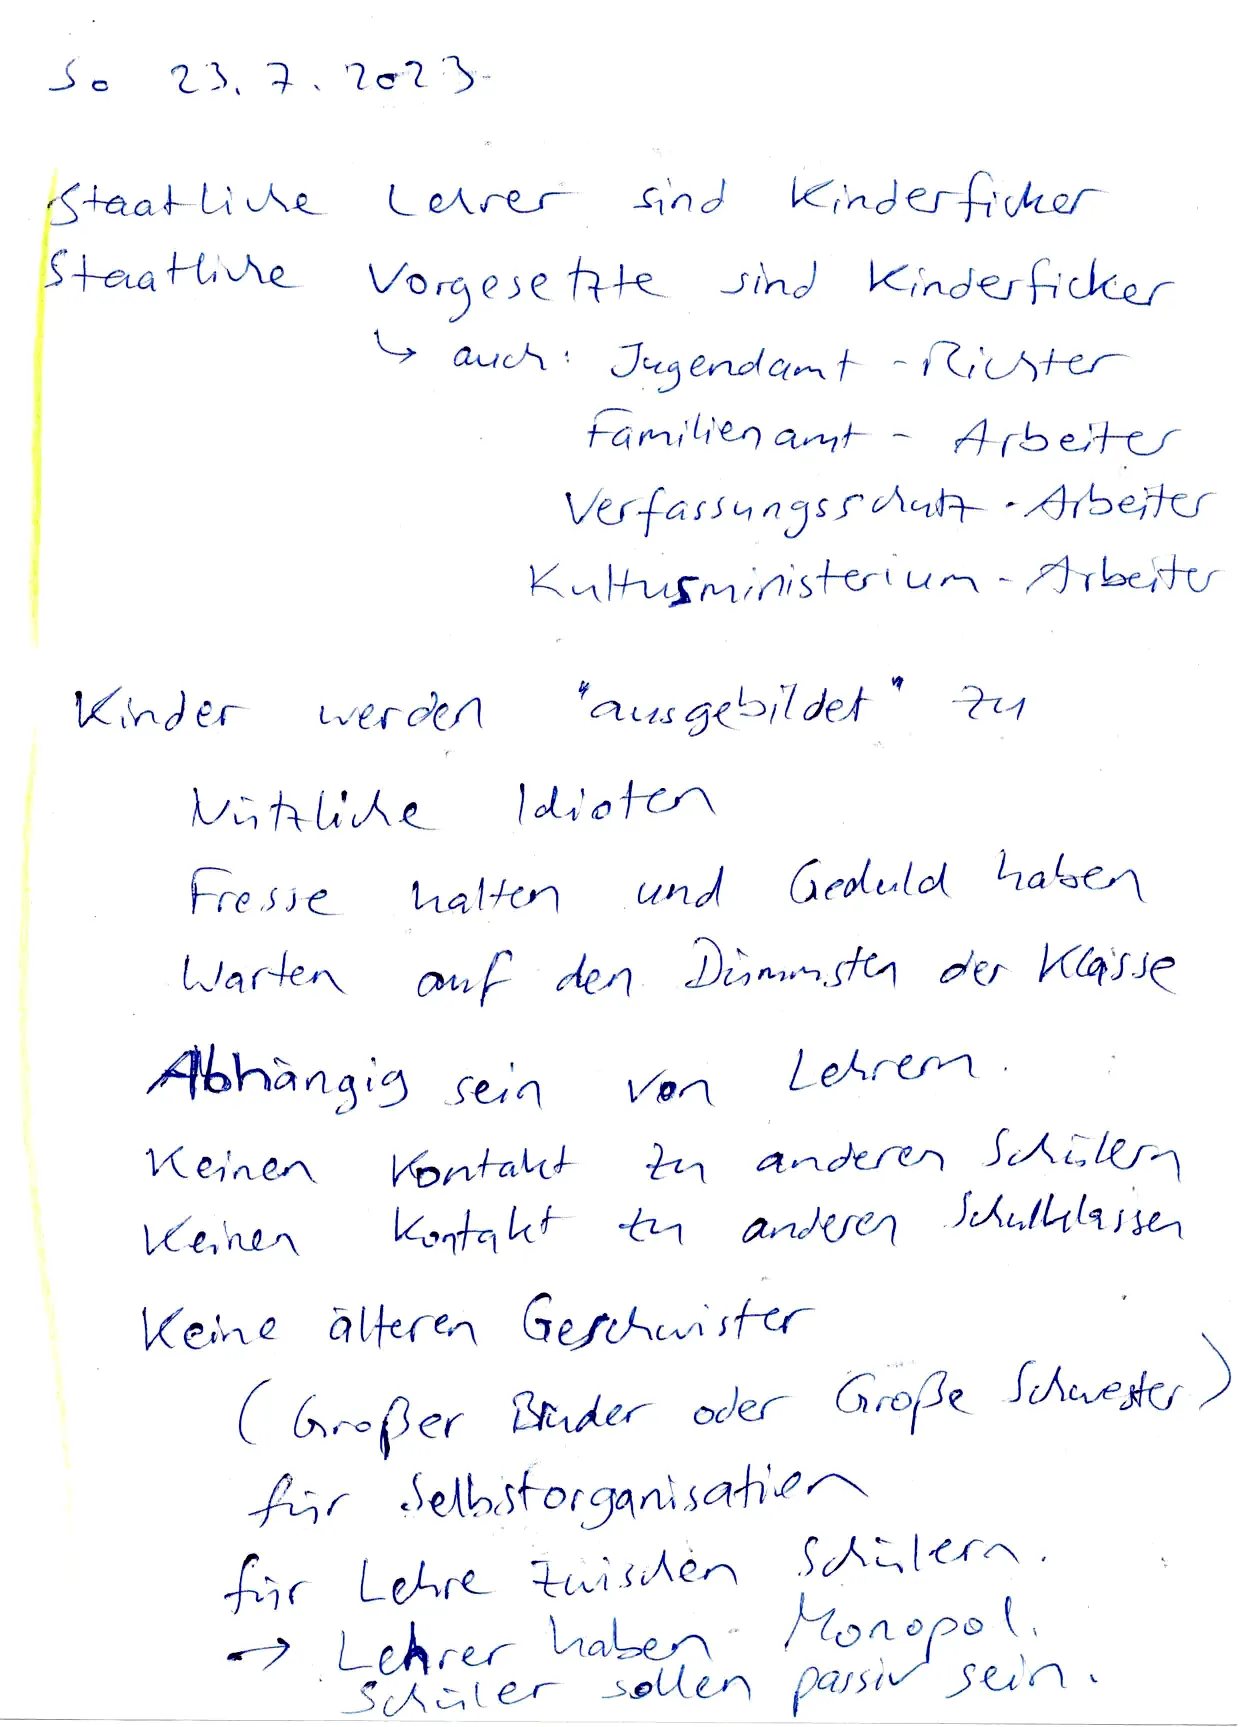 So 23.7.2023
Staatliche Lehrer sind Kinderficker
Staatliche Vorgesetzte sind Kinderficker
↳ auch: Jugendamt - Richter
Familienamt - Arbeiter
Verfassungsschutz - Arbeiter
Kultusministerium - Arbeiter
Kinder werden "ausgebildet" zu
Nützliche Idioten
Fresse halten und Geduld haben
Warten auf den Dümmsten der Klasse
Abhängig sein von Lehrern.
Keinen Kontakt zu anderen Schülern
Keinen Kontakt zu anderen Schulklassen
Keine älteren Geschwister
(Großer Bruder oder Große Schwester)
für Selbstorganisation
für Lehre zwischen Schülern.
→ Lehrer haben Monopol.
Schüler sollen passiv sein.